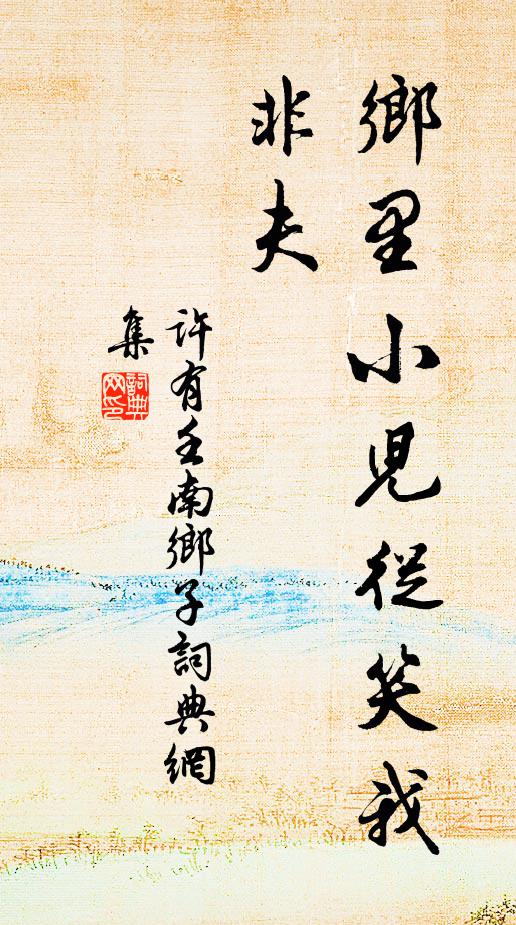 鄉里小兒從笑我
非夫
許有壬南鄉子詞典網
集
詞典
網印